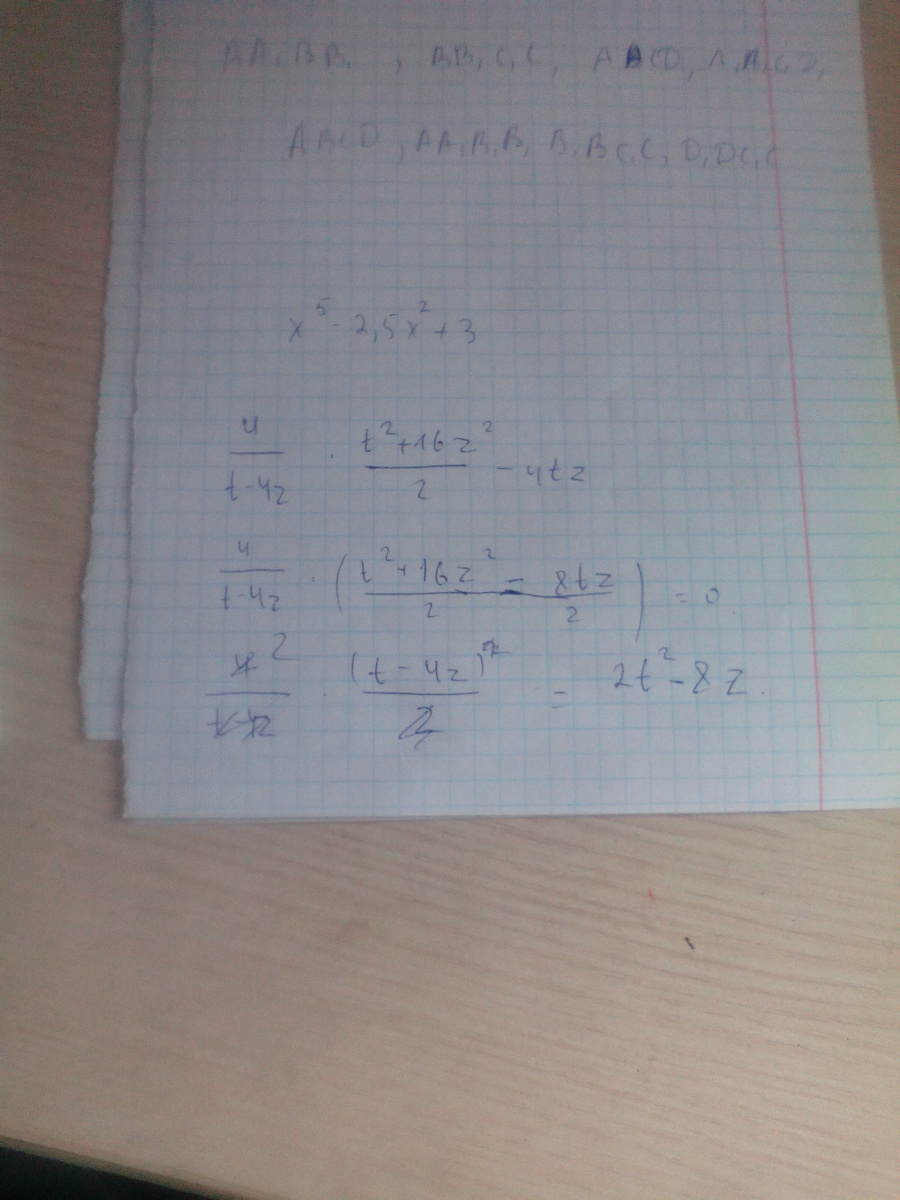 AA₁BB₁, B₁B₁C₁C, ABCD, A₁B₁C₁D₁
ABCD, AA₁B₁B, B₁BC₁C, D₁DC₁C
x⁵ - 2,5x² + 3
4/(t-4z) · (t²+16z²)/2 - 4tz
4/(t-4z) · ((t²+16z²)/2 - 8tz/2) = 0
4 2/(t-4z) · (t-4z)²/2 = 2t² - 8z.